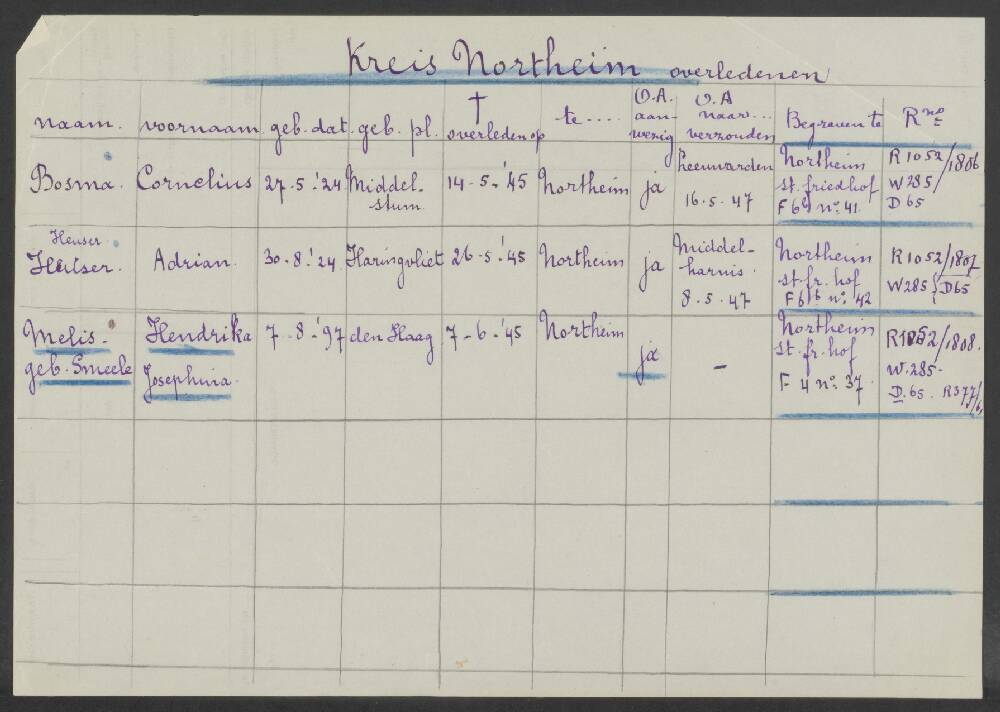 Kreis Northeim overledenen
naam. voornaam geb. dat. geb. pl. † overleden op te .... O.A. aan- wezig O.A naar... verzonden Begraven te R no
Bosma. Cornelius 27-5-'24 Middel- stum. 14-5-'45 Northeim ja Leeuwarden 16-5-47 Northeim st. friedhof F 6 b no. 41. R 1052/1806 W 285/ D 65
Heuser
Hülser. Adrian. 30-8-'24 Haringvliet 26-5-'45 Northeim ja Middel- harnis 8-5-47 Northeim st. fr. hof F 6 b no. 42 R 1052/1807 W 285 { D65
Melis- geb. Smeele Hendrika Josephina. 7-8-'97 den Haag 7-6-'45 Northeim ja - Northeim st. fr. hof F 4 no. 37. R1052/1808. W. 285- D. 65. R377/